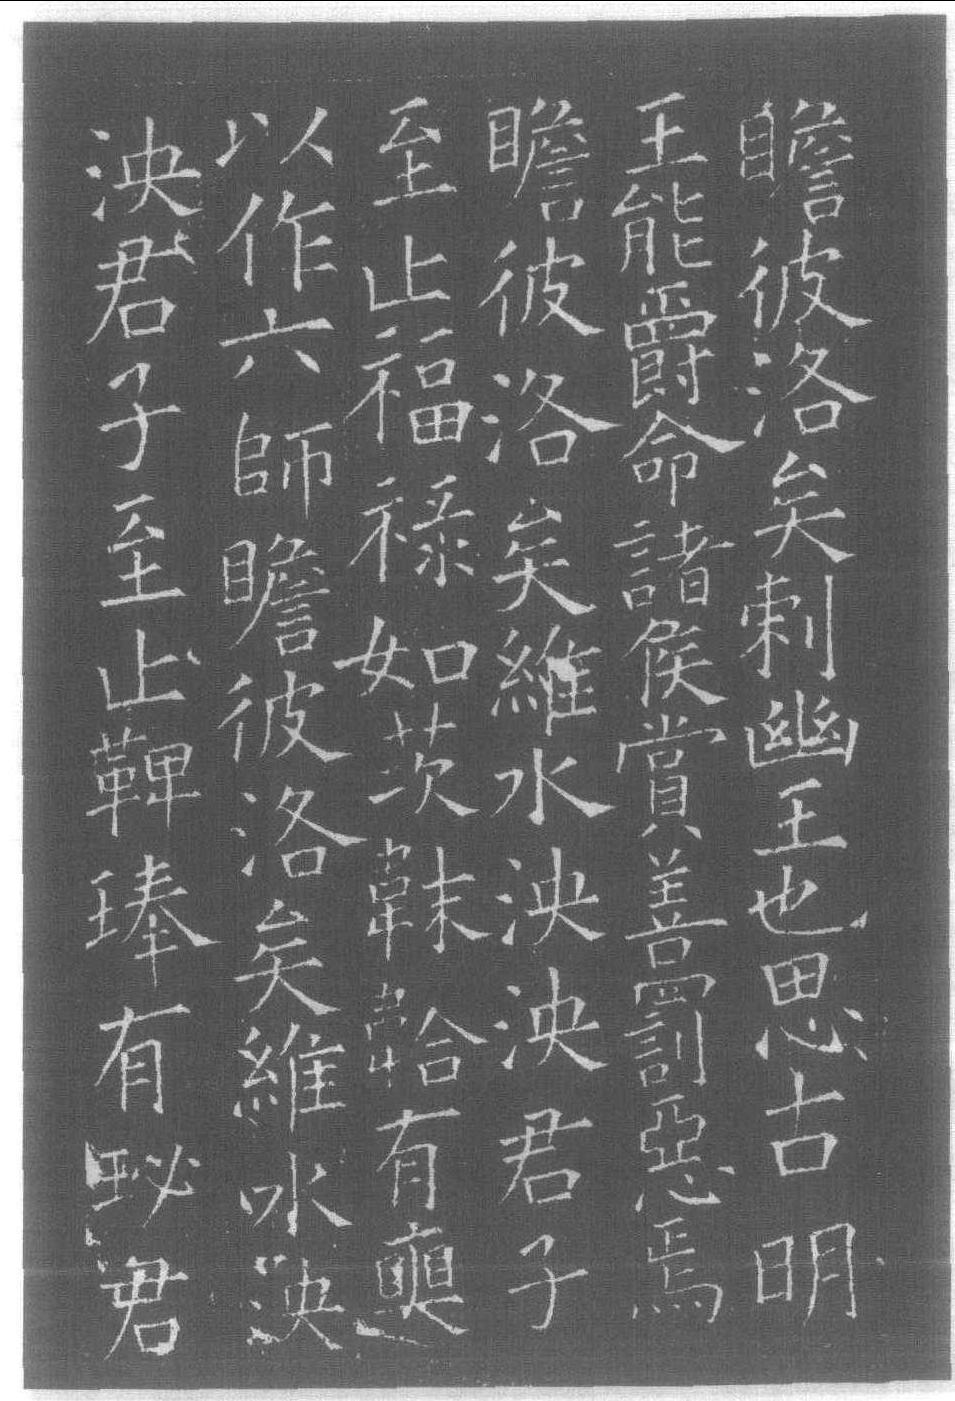 瞻彼洛矣刺幽王也思古明
王能爵命諸侯賞善罰惡焉
瞻彼洛矣維水泱泱君子
至止福祿如茨韎韐有奭
以作六師瞻彼洛矣維水泱
泱君子至止鞞琫有珌君